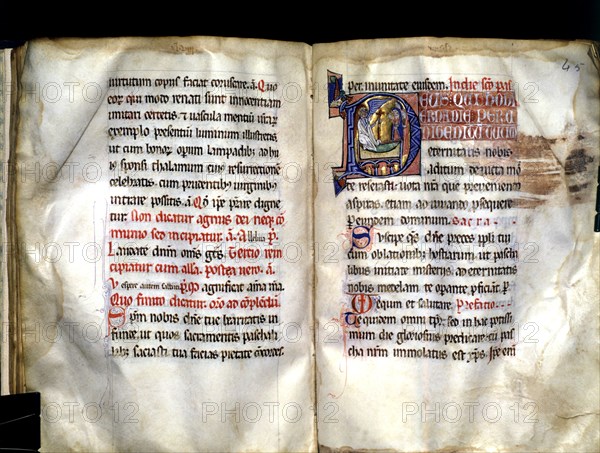 uirtutum copiis faciat coruscare. a. Quo
eorum qui modo renati sunt innocentiam
imitari certetis. & uascula mentium uestrarum
exemplo presentium luminum illustretis.
ut cum bonorum operum lampadibus ad hui
sponsi thalamum cuius resurrectionem
celebratis. cum prudentibus uirginibus
intrare possitis. a. Quod ipse prestare digne
tur. Non dicatur agnus dei neque co
munio sed incipiatur. a. Alleluia
Laudate dominum omnes gentes. Tercio rein
cipiatur cum alleluia. postea uero. a.
Vespere autem sabbati magnificat anima mea.
Quo finito dicatur. oratio ad complendum
Spiritum nobis domine tue karitatis in
funde. ut quos sacramentis paschali
bus saciasti tua facias pietate concordes.
45
per. in unitate eiusdem. In die sancto pas
DEUS QUI HODI
ERNA DIE PER U
NIGENITUM TUUM
eternitatis nobis
aditum deuicta mor
te reserasti. uota nostra que preueniendo
aspiras. etiam adiuuando prosequere.
Per eundem dominum. Sacra
Suscipe quesumus domine preces populi tui
cum oblationibus hostiarum. ut pascha
libus initiate misteriis. ad eternitatis
nobis medelam te operante proficiant. per
Uere dignum et salutare. Prefatio
Te quidem omni tempore. sed in hac potissi
mum die gloriosius predicare. cum pas
cha nostrum immolatus est christus. Ipse enim
PHOTO 12 PHOTO 12 PHOTO 12